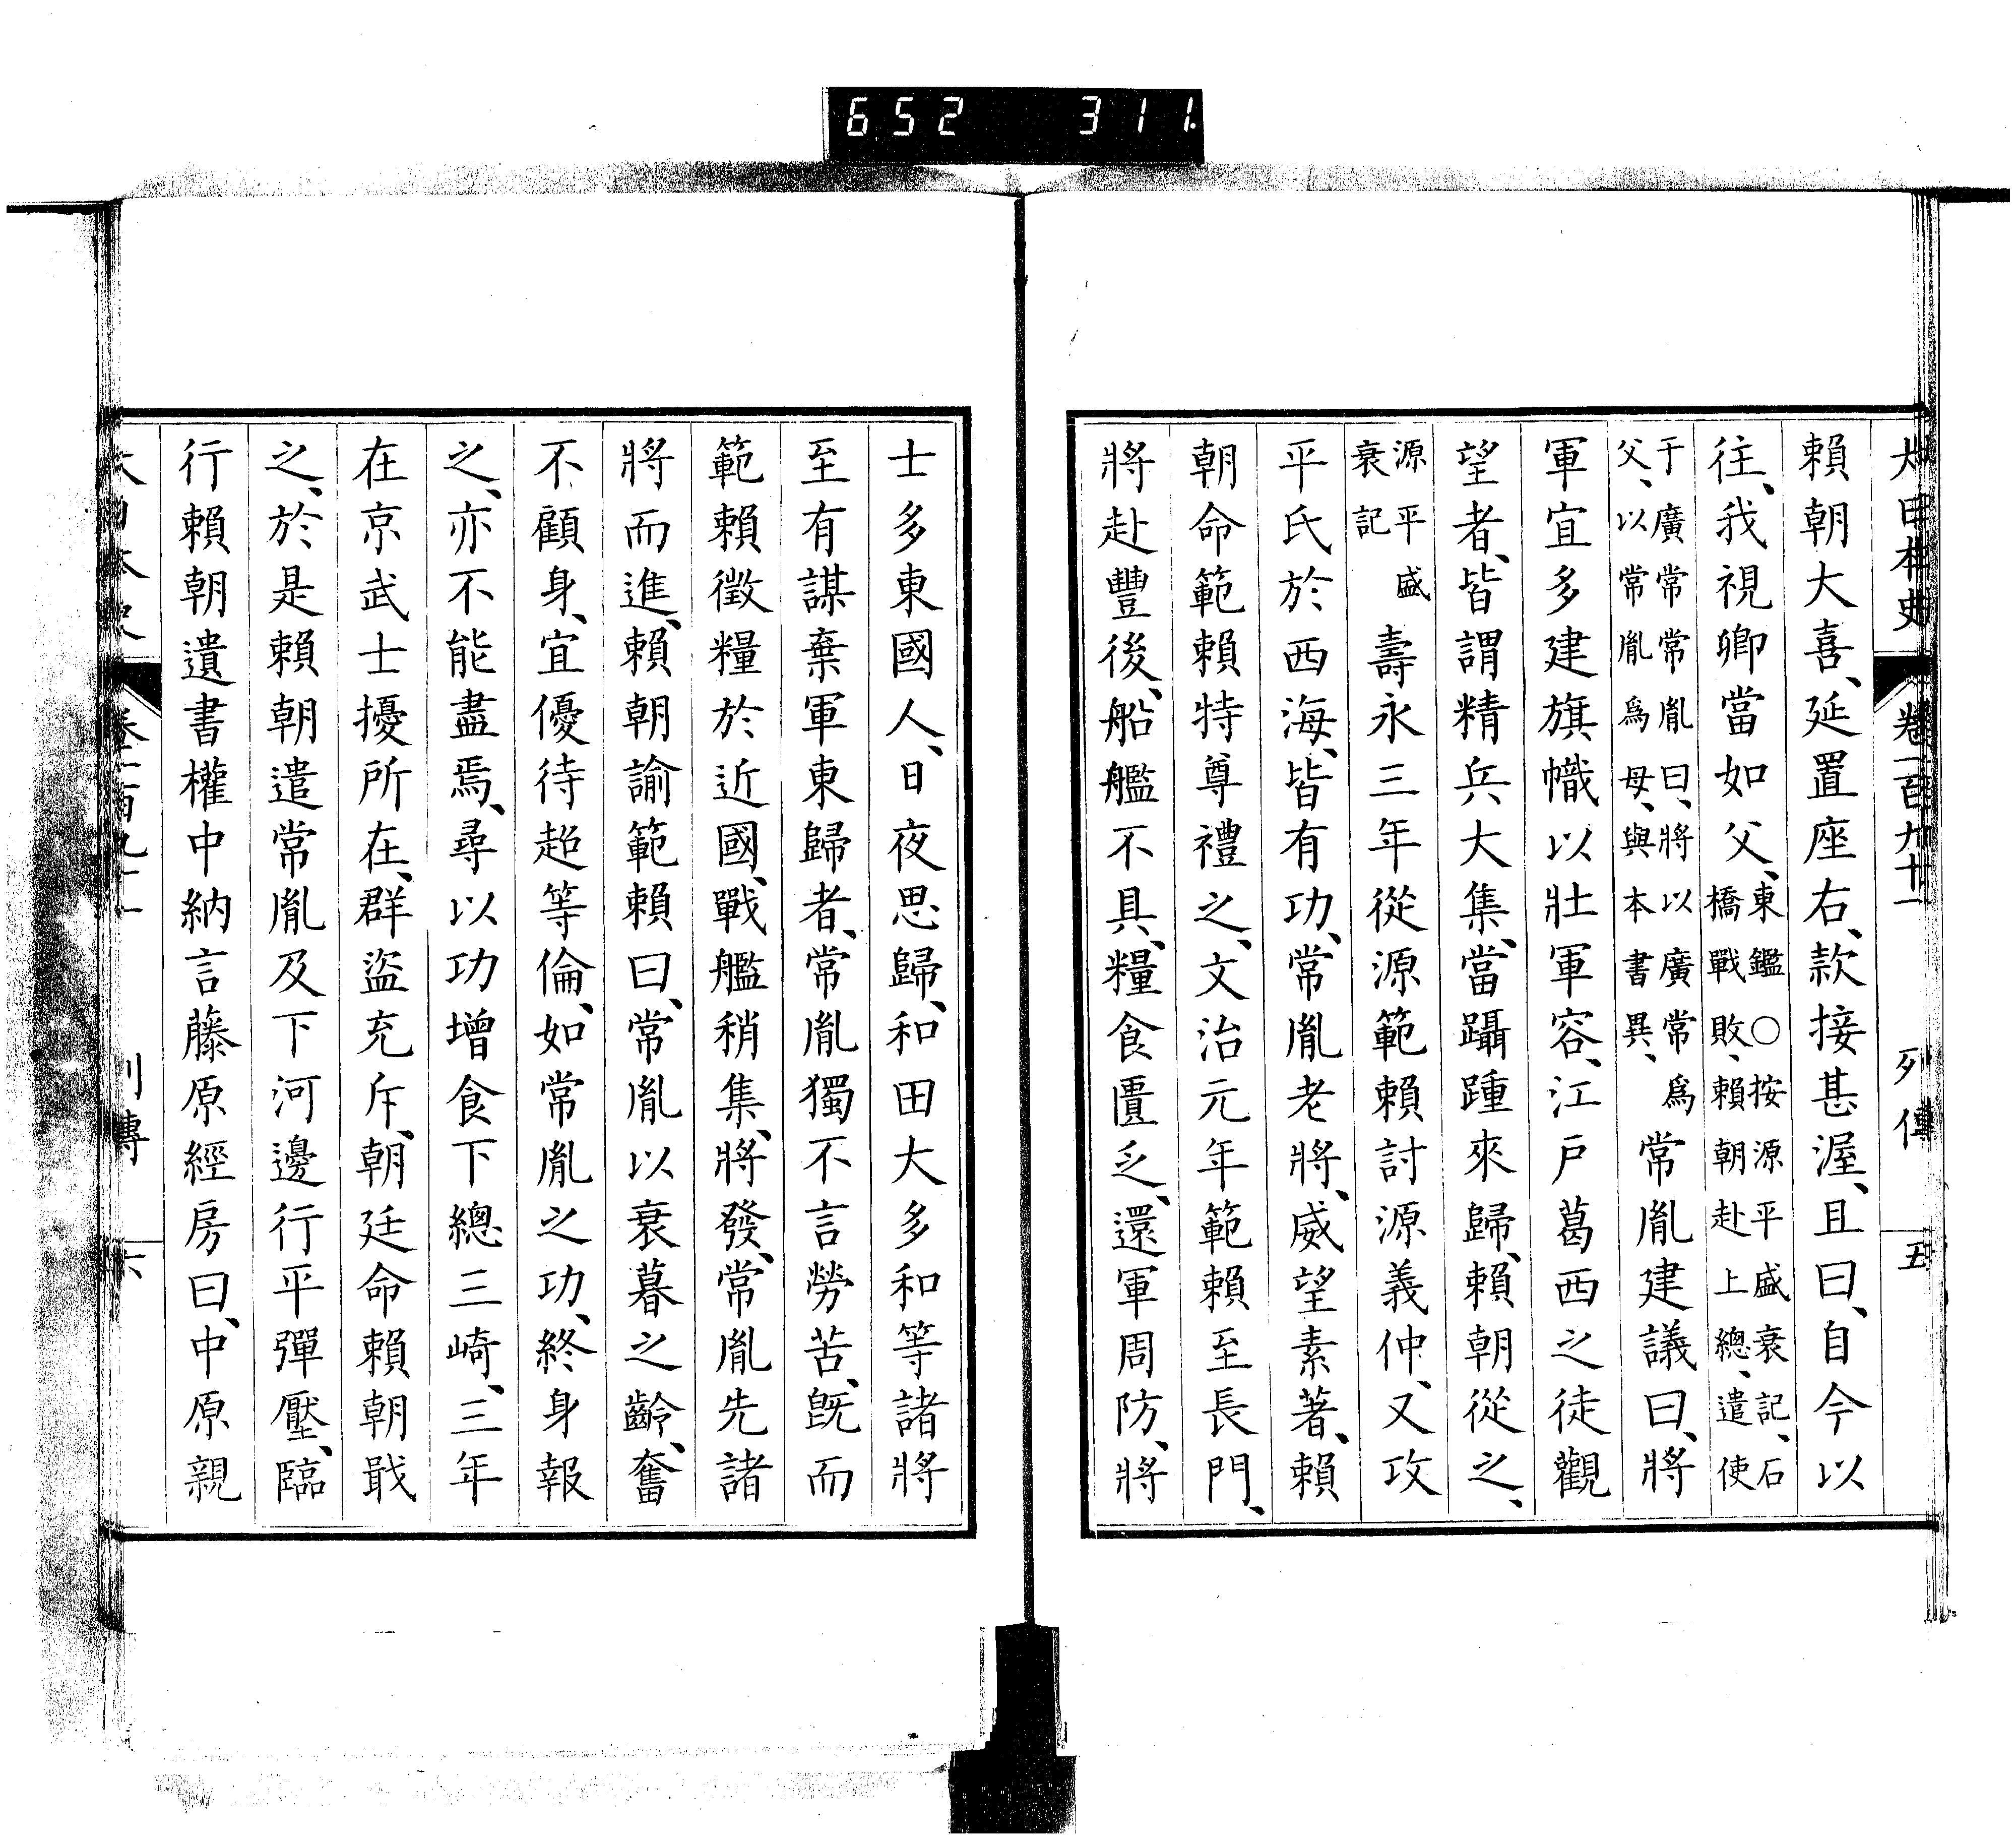 652 311
大日本史 卷一百九十一 列傳 五
賴朝大喜、延置座右、款接甚渥、且曰、自今以
往、我視卿當如父、東鑑○按源平盛衰記、石橋戰敗、賴朝赴上總、遣使
于廣常常胤曰、將以廣常爲父、以常胤爲母、與本書異、常胤建議曰、將
軍宜多建旗幟以壯軍容、江戶葛西之徒觀
望者、皆謂精兵大集、當躡踵來歸、賴朝從之、
源平盛衰記壽永三年從源範賴討源義仲、又攻
平氏於西海、皆有功、常胤老將、威望素著、賴
朝命範賴特尊禮之、文治元年範賴至長門、
將赴豐後、船艦不具、糧食匱乏、還軍周防、將
士多東國人、日夜思歸、和田大多和等諸將
至有謀棄軍東歸者、常胤獨不言勞苦、旣而
範賴徵糧於近國、戰艦稍集、將發、常胤先諸
將而進、賴朝諭範賴曰、常胤以衰暮之齡、奮
不顧身、宜優待超等倫、如常胤之功、終身報
之、亦不能盡焉、尋以功增食下總三崎、三年
在京武士擾所在、群盜充斥、朝廷命賴朝戢
之、於是賴朝遣常胤及下河邊行平彈壓、臨
行賴朝遺書權中納言藤原經房曰、中原親
大日本史 卷一百九十一 列傳 六